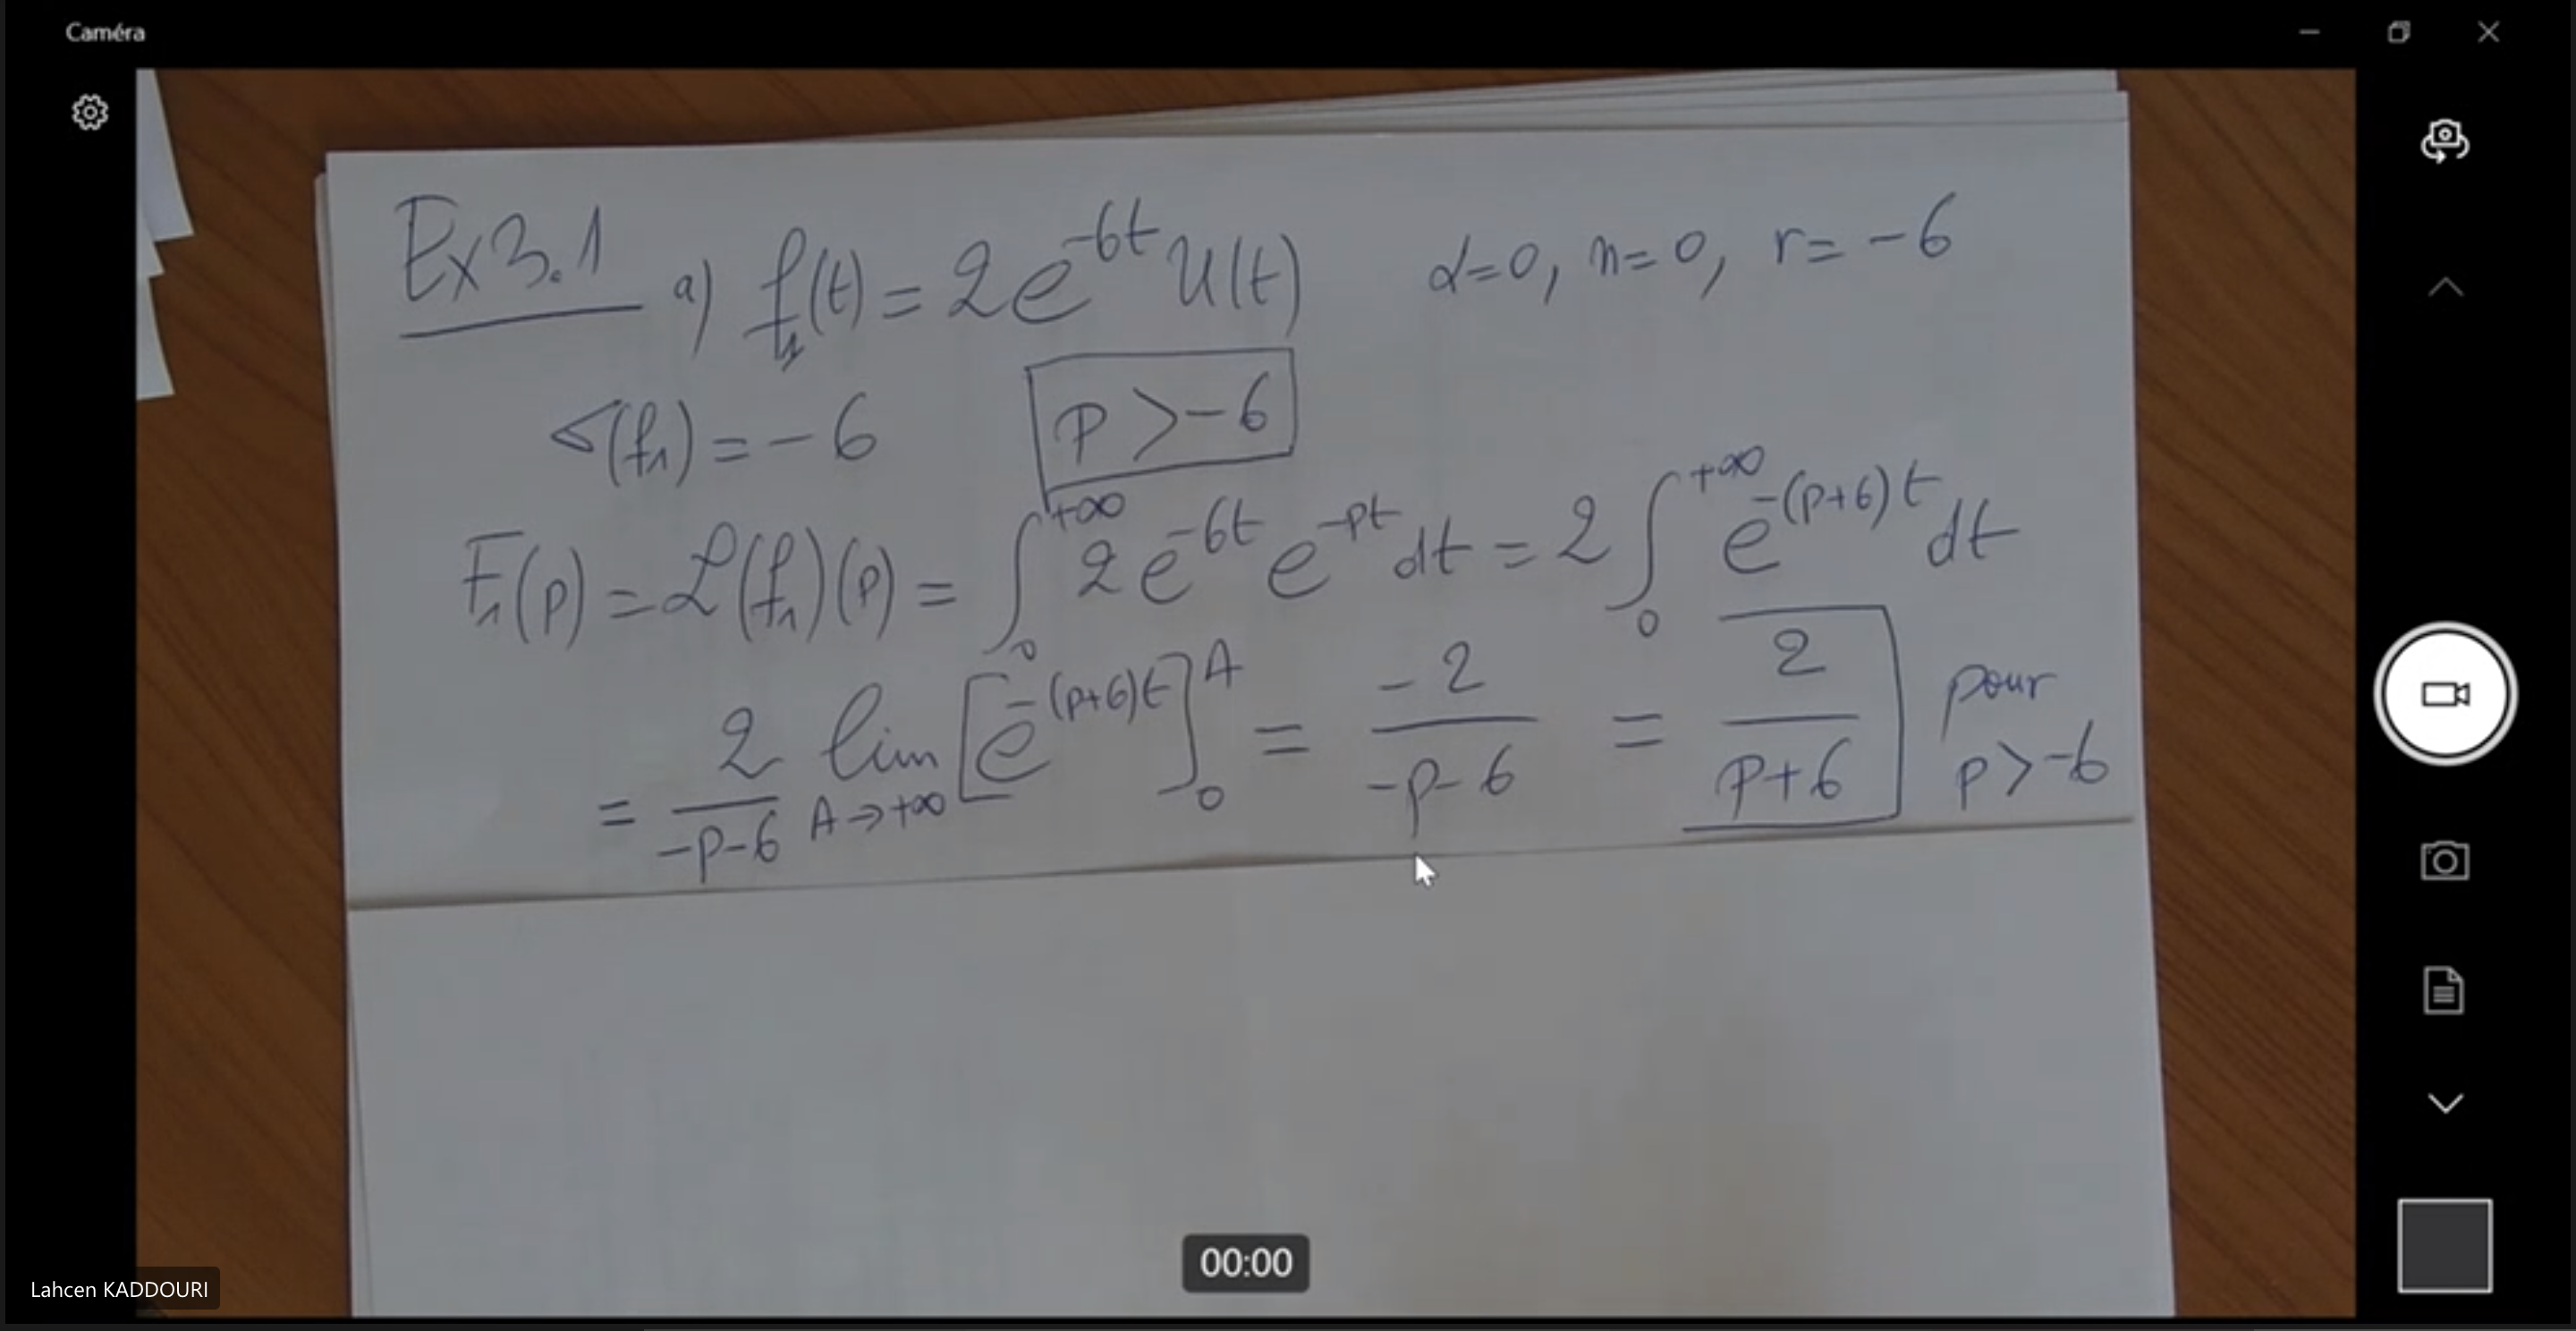 Caméra
Ex 3.1 a) f₁(t) = 2e^{-6t} U(t) α=0, n=0, r=-6
σ(f₁) = -6 p > -6
F₁(p) = ℒ(f₁)(p) = ∫₀^{+∞} 2e^{-6t} e^{-pt} dt = 2 ∫₀^{+∞} e^{-(p+6)t} dt
= 2/(-p-6) lim_{A→+∞} [e^{-(p+6)t}]₀^A = -2/(-p-6) = 2/(p+6) pour p>-6
00:00
Lahcen KADDOURI